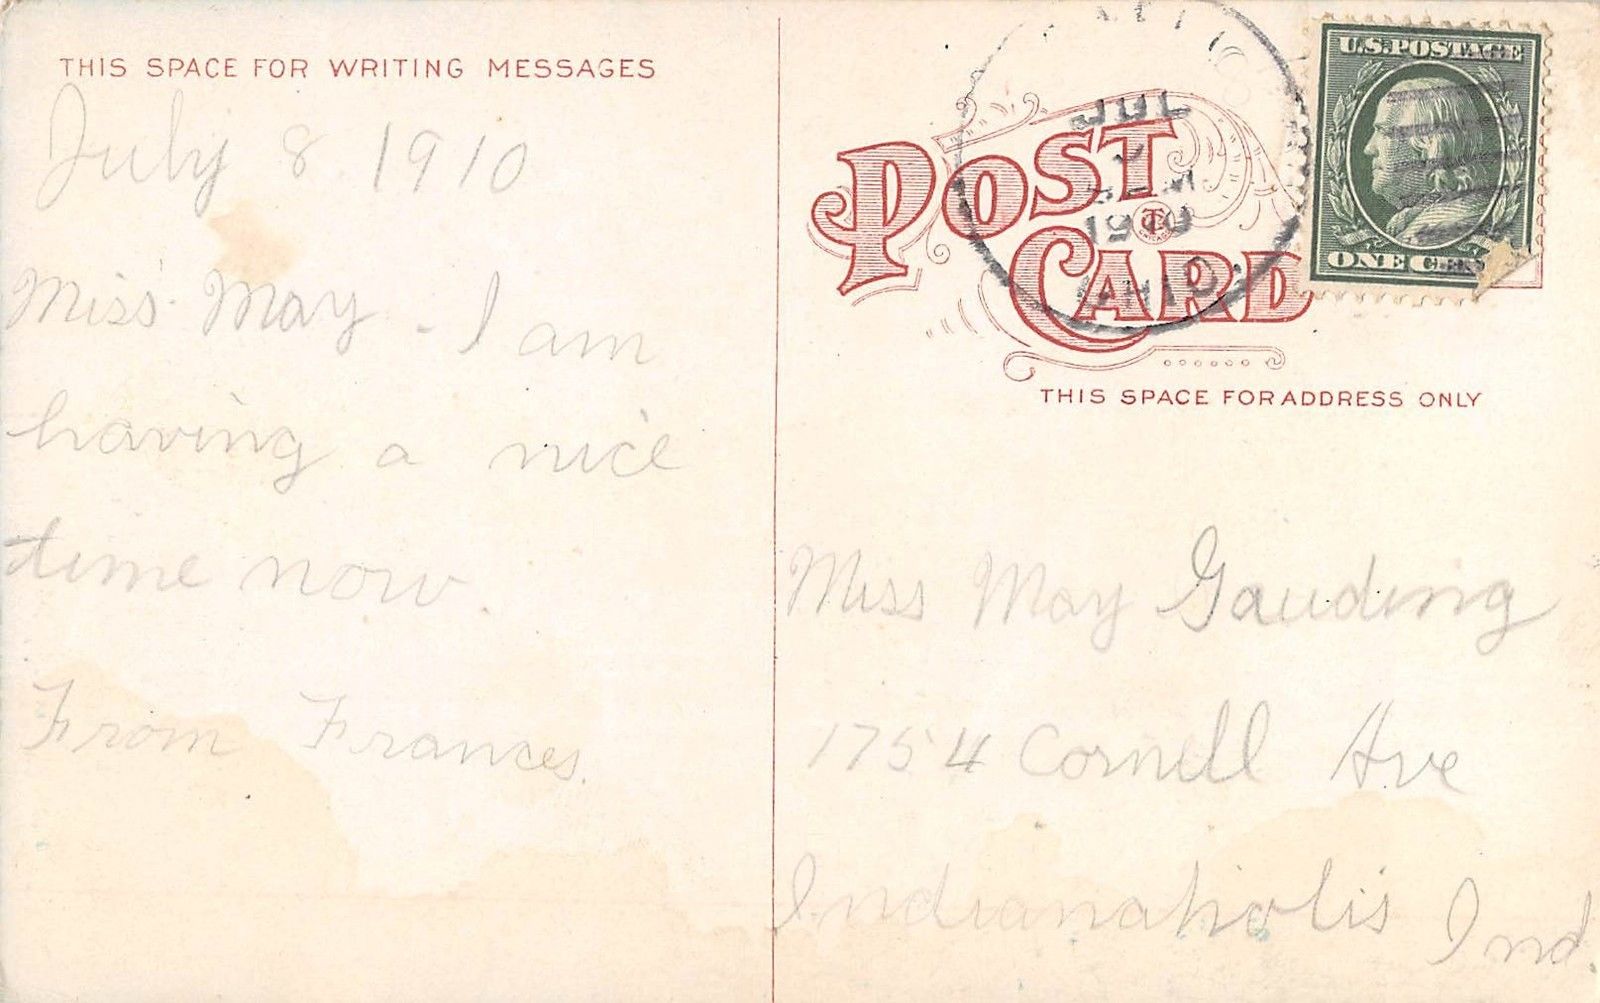 THIS SPACE FOR WRITING MESSAGES
July 8 1910
Miss May - I am
having a nice
time now.
From Frances.
POST CARD
JUL
1910
OHIO.
U.S.POSTAGE
ONE CENT
THIS SPACE FOR ADDRESS ONLY
Miss May Gauding
1754 Cornell Ave
Indianapolis Ind.